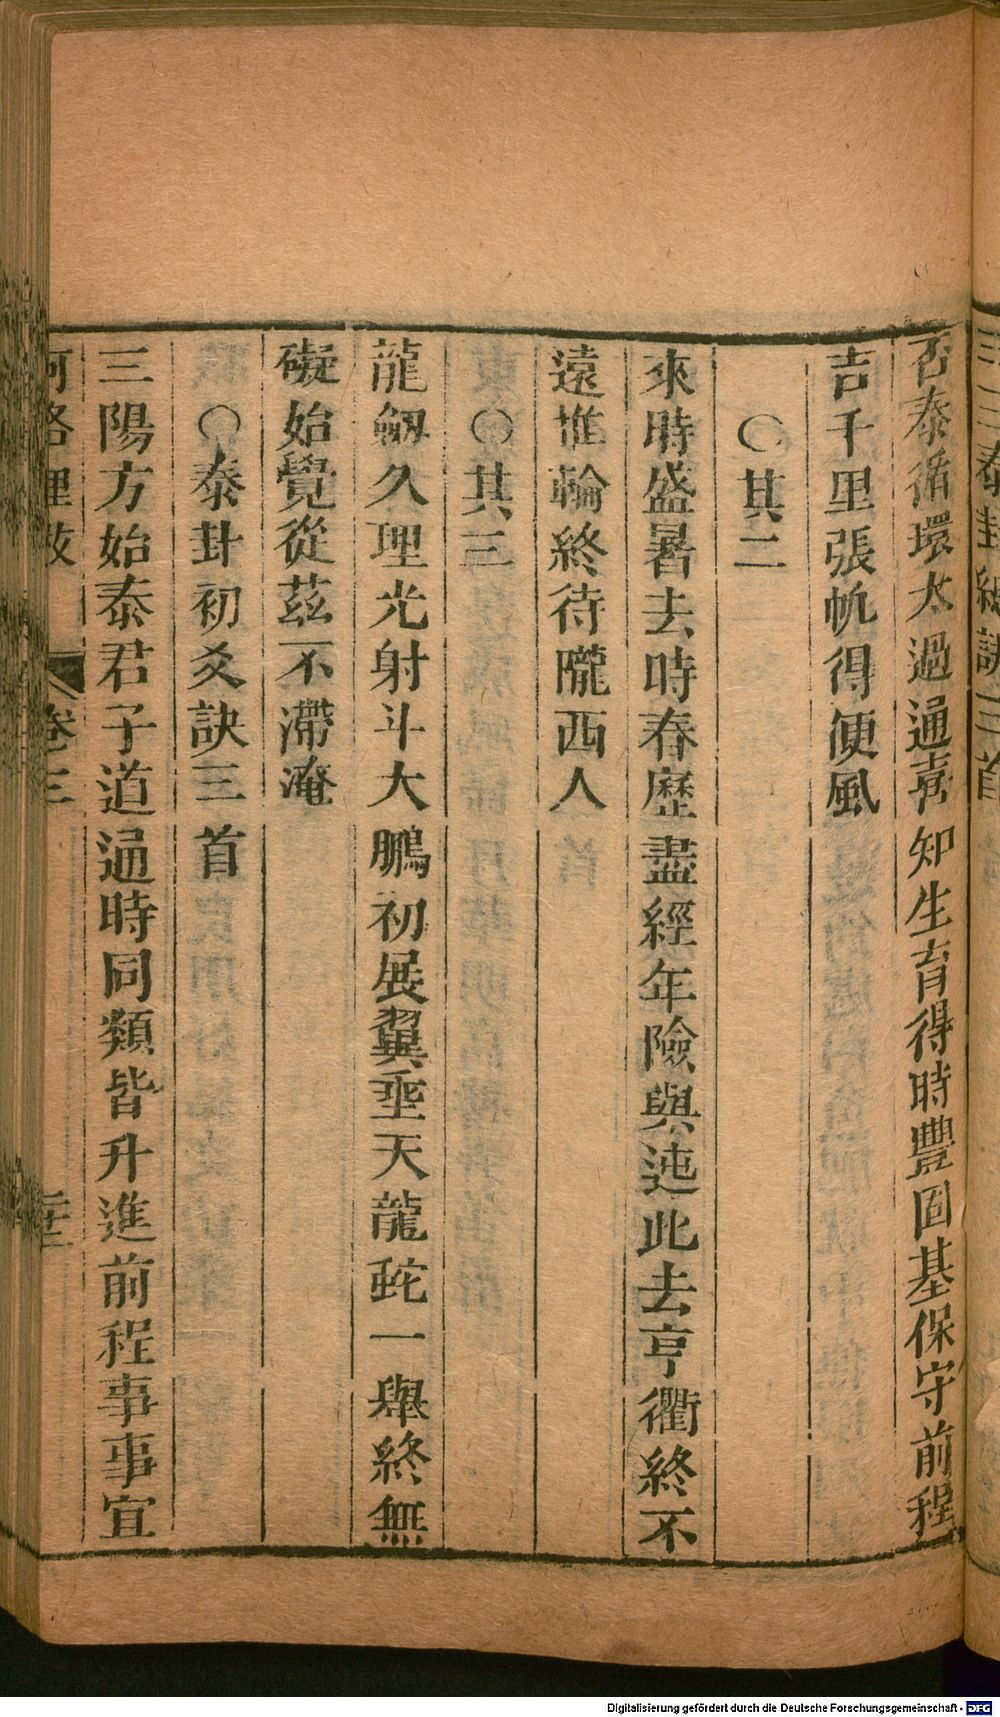 三三泰卦總訣三首
否泰循環大過通喜知生育得時豐固基保守前程
吉千里張帆得便風
〇其二
來時盛暑去時春歷盡經年險與迍此去亨衢終不
遠惟輪終待隴西人
〇其三
龍劔久理光射斗大鵬初展翼垂天龍蛇一舉終無
礙始覺從茲不滯淹
〇泰卦初爻訣三首
三陽方始泰君子道通時同類皆升進前程事事宜
河洛理數 卷三 二十三
Digitalisierung gefördert durch die Deutsche Forschungsgemeinschaft - DFG